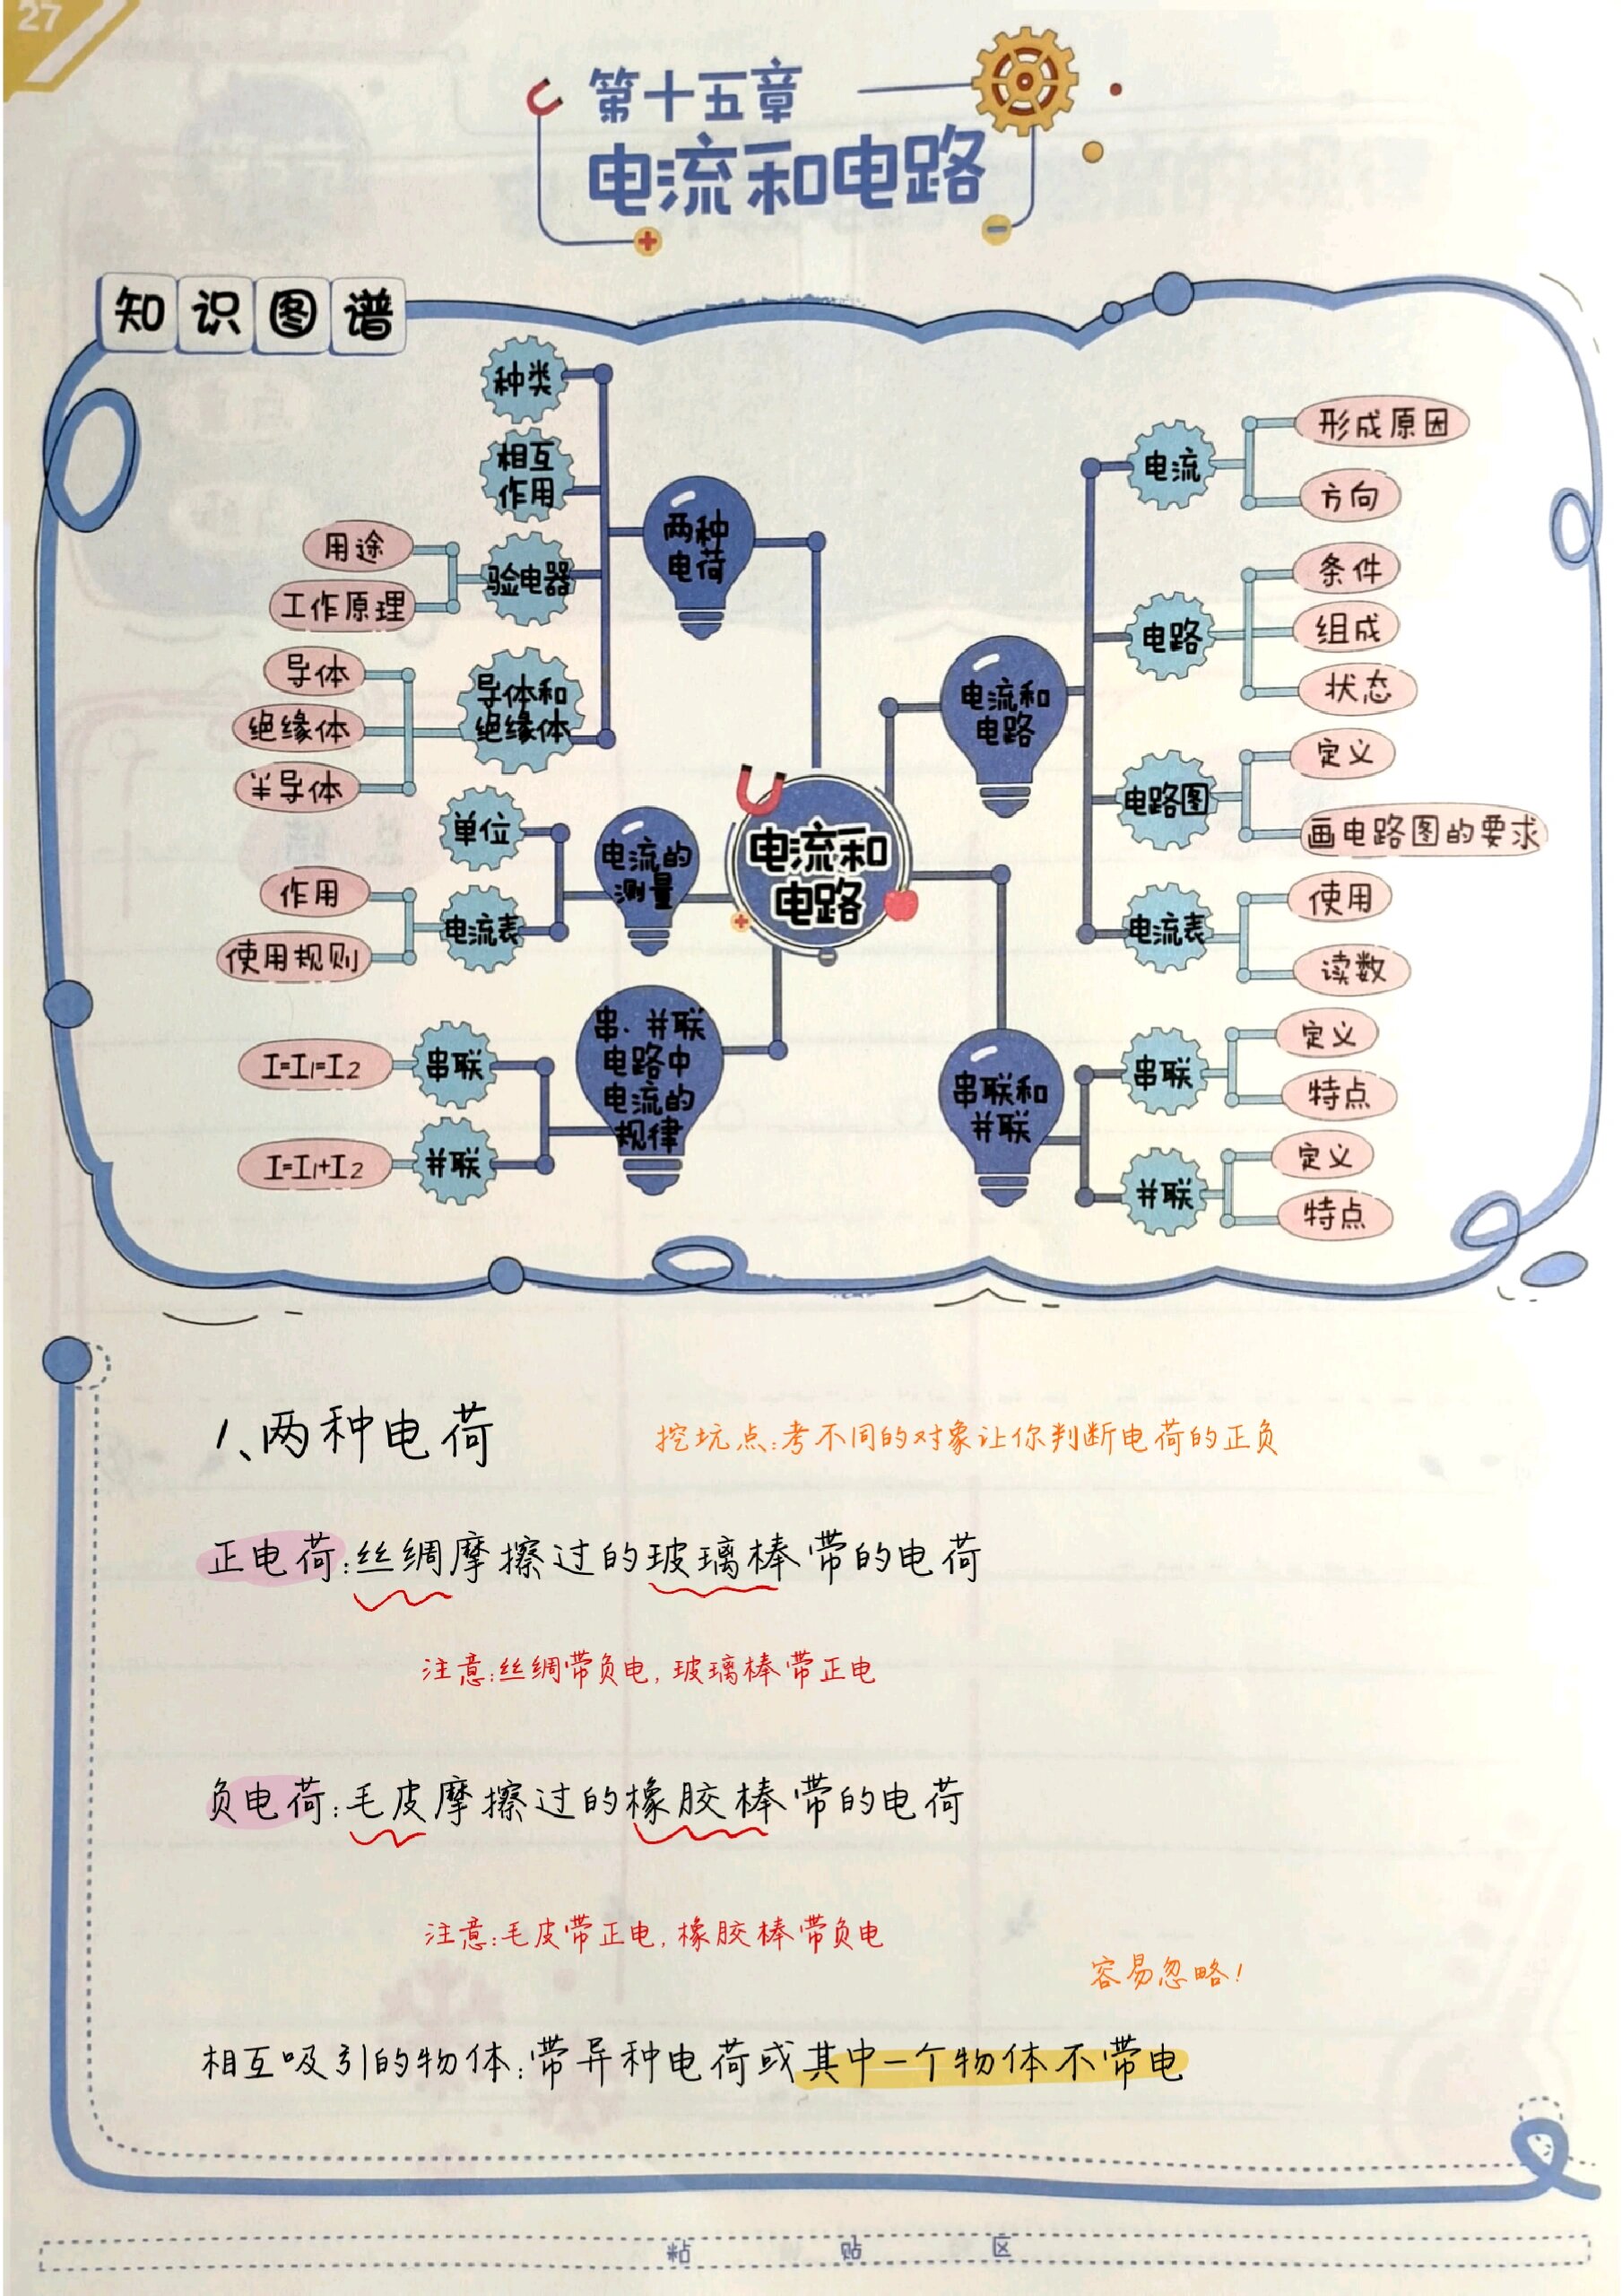 27
第十五章
电流和电路
知识图谱
种类
相互
作用
用途
工作原理
验电器
两种
电荷
导体
绝缘体
半导体
导体和
绝缘体
单位
作用
使用规则
电流表
电流的
测量
I=I₁=I₂
串联
I=I₁+I₂
并联
串、并联
电路中
电流的
规律
电流和
电路
电流和
电路
电流
形成原因
方向
电路
条件
组成
状态
电路图
定义
画电路图的要求
电流表
使用
读数
串联和
并联
串联
定义
特点
并联
定义
特点
1、两种电荷
挖坑点:考不同的对象让你判断电荷的正负
正电荷:丝绸摩擦过的玻璃棒带的电荷
注意:丝绸带负电,玻璃棒带正电
负电荷:毛皮摩擦过的橡胶棒带的电荷
注意:毛皮带正电,橡胶棒带负电
容易忽略!
相互吸引的物体:带异种电荷或其中一个物体不带电
粘 贴 区